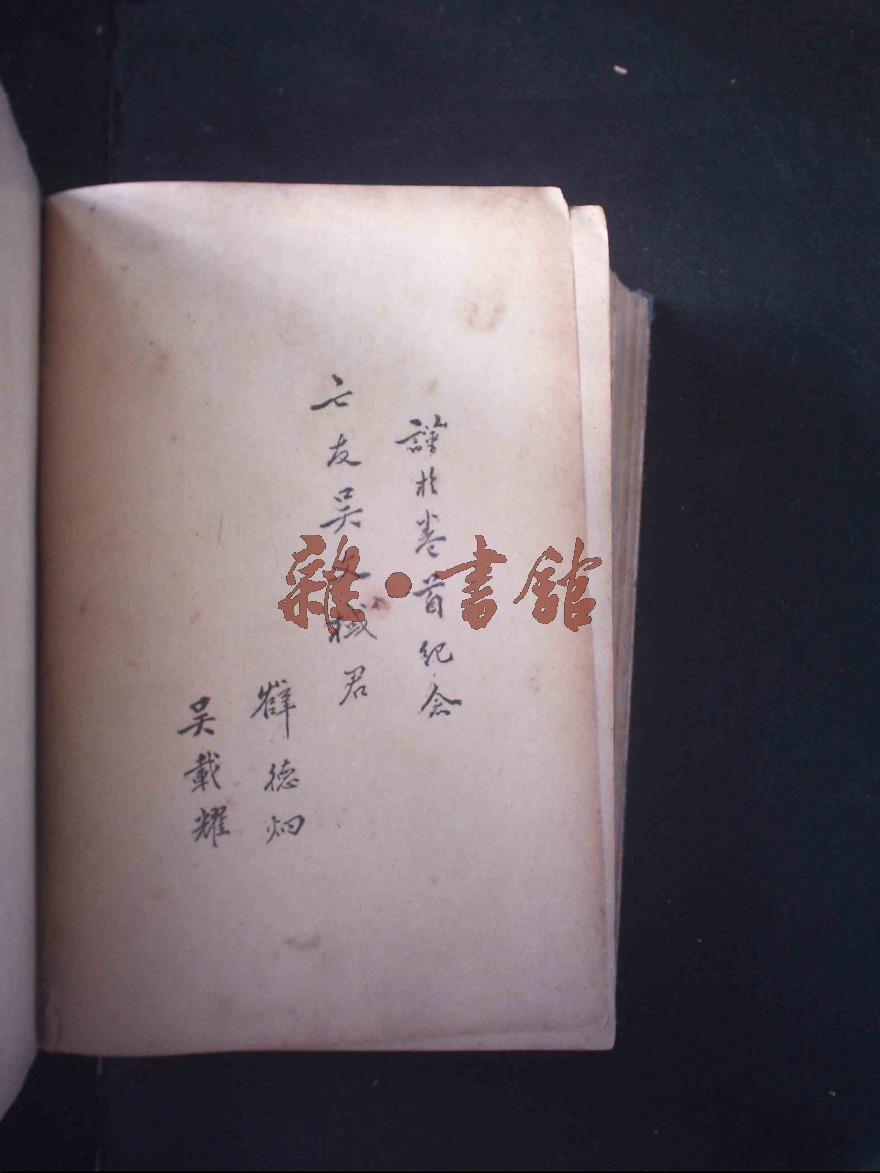 謹於卷首紀念
亡友吳君
薛德炯
吳載耀
雜·書館